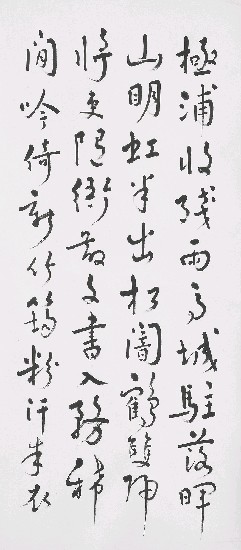 極浦收殘雨高城駐落暉
山明虹半出松闇鶴雙歸
將吏隨衙散文書入務稀
閒吟倚新竹筠粉汙朱衣